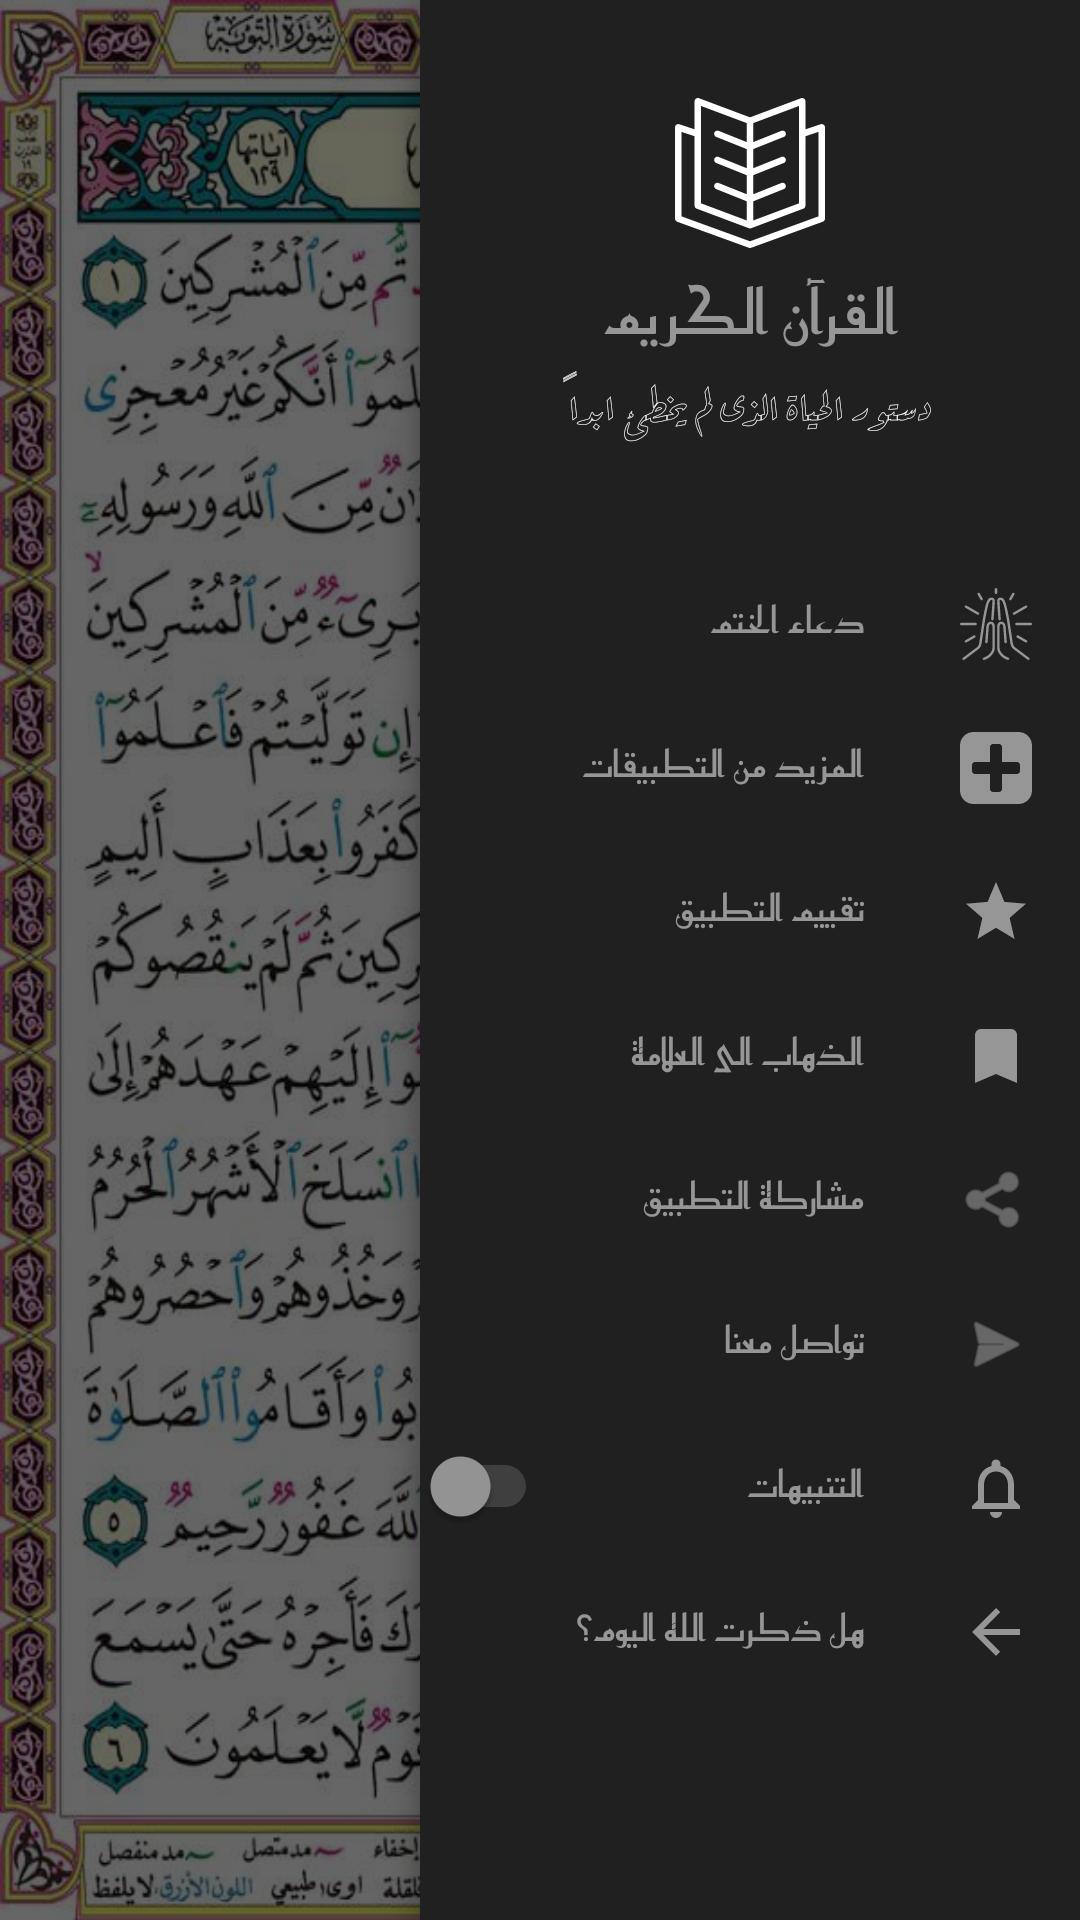 القرآن الكريم
دستور الحياة الذى لم يخطئ ابداً
دعاء الختم
المزيد من التطبيقات
تقييم التطبيق
الذهاب الى العلامة
مشاركة التطبيق
تواصل معنا
التنبيهات
هل ذكرت الله اليوم؟
سُورَةُ التَّوْبَةِ
آياتها
١٢٩
مِّنَ ٱلْمُشْرِكِينَ ١
أَنَّكُمْ غَيْرُ مُعْجِزِى
مِّنَ ٱللَّهِ وَرَسُولِهِۦٓ
بَرِىٓءٌ مِّنَ ٱلْمُشْرِكِينَ
تَوَلَّيْتُمْ فَٱعْلَمُوٓا۟
كَفَرُوا۟ بِعَذَابٍ أَلِيمٍ
ثُمَّ لَمْ يَنقُصُوكُمْ
إِلَيْهِمْ عَهْدَهُمْ إِلَىٰ
ٱنسَلَخَ ٱلْأَشْهُرُ ٱلْحُرُمُ
وَخُذُوهُمْ وَٱحْصُرُوهُمْ
وَأَقَامُوا۟ ٱلصَّلَوٰةَ
غَفُورٌ رَّحِيمٌ ٥
فَأَجِرْهُ حَتَّىٰ يَسْمَعَ
لَّا يَعْلَمُونَ ٦
إخفاء مد متصل مد منفصل
اوى؛ طبيعي اللون الأزرق، لا يلفظ